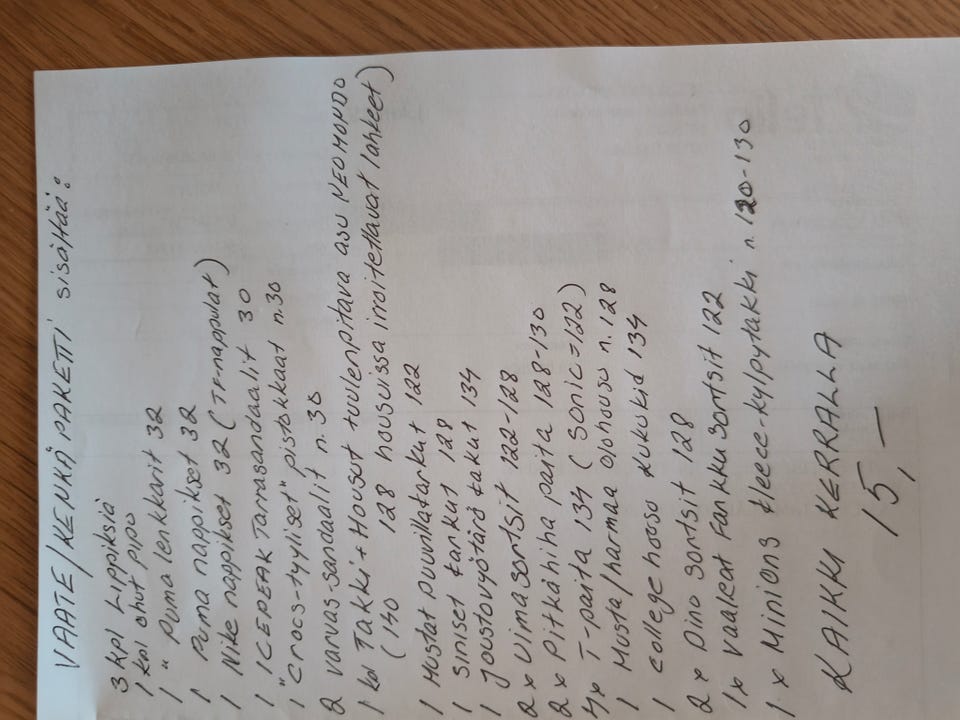 VAATE/KENKÄPAKETTI sisältää:
3 kpl Lippiksiä
1 kpl ohut pipo
1 " Puma lenkkarit 32
1 Puma nappikset 32
1 Nike nappikset 32 (TF-nappulat)
1 ICEPEAK Tarrasandaalit 30
1 "Crocs-tyyliset" pistokkaat n.30
2 varvas-sandaalit n.30
1 kpl Takki+Housut tuulenpitävä asu NEOMONDO
(130 128 housuissa irroitettavat lahkeet)
1 Mustat puuvillatankut 122
1 siniset tankut 128
1 joustovyötärö takut 134
2 x Uimasortsit 122-128
2 x Pitkähiha paita 128-130
4 x T-paita 134 (sonic=122)
1 Musta/harmaa olohousu n.128
1 college housu kukukid 134
2 x Dino sortsit 128
1 x vaaleat Fankku sortsit 122
1 x Minions fleece-kylpytakki n.120-130
KAIKKI KERRALLA
15,-